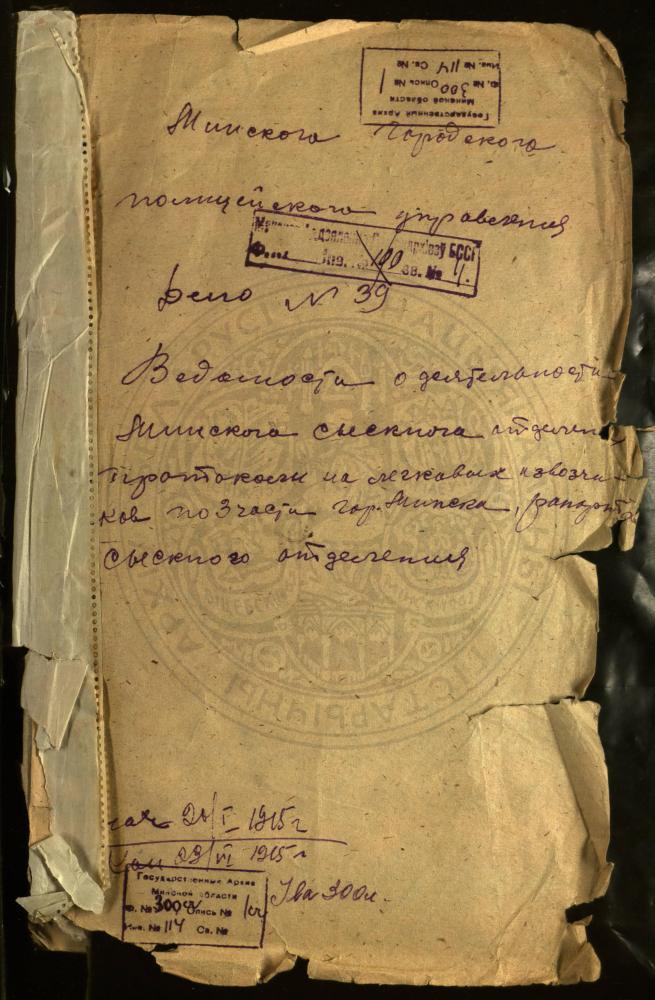 Государственный Архив
Минской области
Ф. № 300 Опись № 1
Инв. № 114 Св. №
Минского Городского
полицейского управления
БССР
Инв. № 100 Св. № 4.
Дело № 39
Ведомости о деятельности
Минского сыскного отделения
протоколы на легковых извозчи-
ков по 3 части гор. Минска, рапорта
сыскного отделения
нач 24/I 1915 г
Кон 23/VI 1915 г
Государственный Архив
Минской области
Ф. № 300 Опись № 1
Инв. № 114 Св. №
На 300 л.